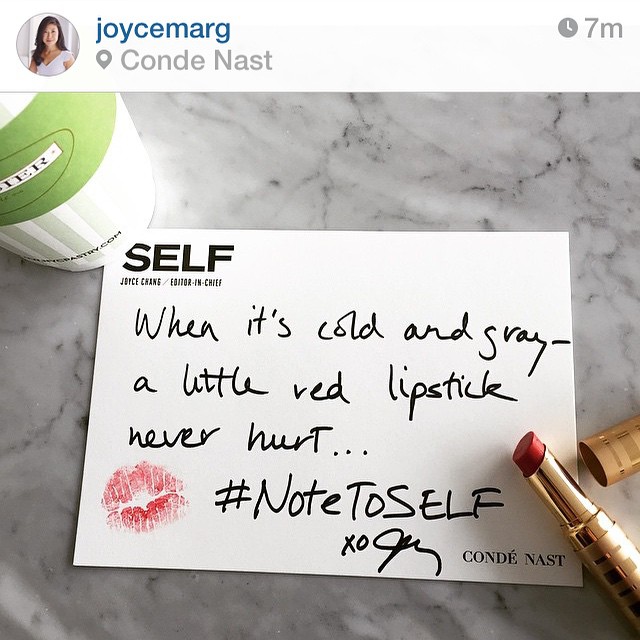 joycemarg
7m
Conde Nast
SELF
JOYCE CHANG / EDITOR-IN-CHIEF
When it's cold and gray—
a little red lipstick
never hurt...
#NoteToSELF
xo
CONDÉ NAST